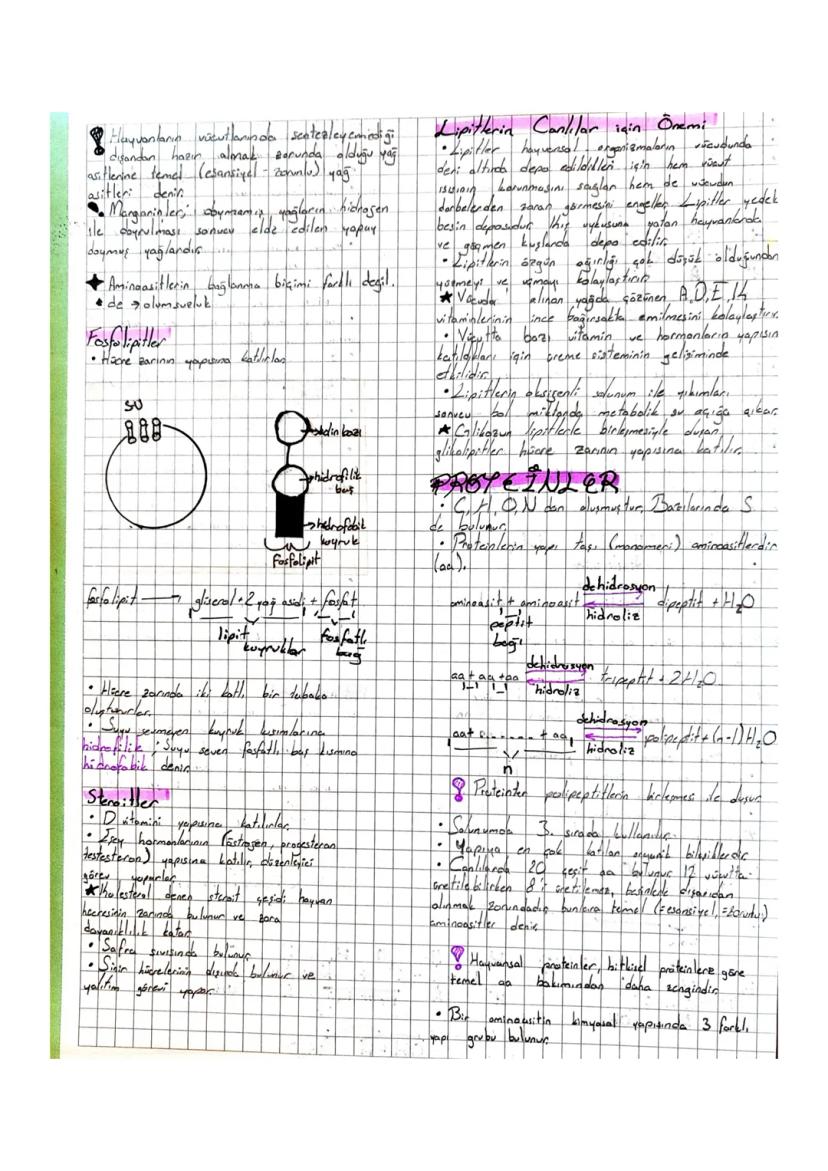 Hayvanların vücutlarında sentezleyemediği
dışarıdan hazır almak zorunda olduğu yağ
asitlerine temel (esansiyel - zorunlu) yağ
asitleri denir.
Margarinler; doymamış yağların hidrojen
ile doyrulması sonucu elde edilen yapay
doymuş yağlardır.
Aminoasitlerin bağlanma biçimi farklı değil.
de → olumsuzluk
Fosfolipitler
• Hücre zarının yapısına katılırlar
SU
→adin bazı
→hidrofilik
baş
→hidrofobik
kuyruk
Fosfolipit
fosfolipit → gliserol+2 yağ asidi + fosfat
lipit
kuyruklar
fosfatlı
bağ
• Hücre zarında iki katlı bir tabaka
oluştururlar.
• Suyu sevmeyen kuyruk kısımlarına
hidrofilik suyu seven fosfatlı baş kısmına
hidrofobik denir.
Steroitler
• D vitamini yapısına katılırlar.
• Eşey hormonlarının (östrojen, progesteron
testesteron) yapısına katılır, düzenleyici
görev yaparlar
★ Kolesterol denen steroit çeşidi hayvan
hücresinin zarında bulunur ve zara
dayanıklılık katar.
• Safra sıvısında bulunur
• Sinir hücrelerinin dışında bulunur ve
yalıtım görevi yapar.
Lipitlerin Canlılar için Önemi
• Lipitler hayvansal organizmaların vücudunda
deri altında depo edildikleri için hem vücut
ısısının korunmasını sağlar hem de vücudun
darbelerden zarar görmesini engeller. Lipitler yedek
besin deposudur. Kış uykusuna yatan hayvanlarda
ve göçmen kuşlarda depo edilir.
• Lipitlerin özgün ağırlığı çok düşük olduğundan
yüzmeyi ve uçmayı kolaylaştırır.
★ Vücuda alınan yağda çözünen A,D,E,K
vitaminlerinin ince bağırsakta emilmesini kolaylaştırır.
• Vücutta bazı vitamin ve hormonların yapısın
katıldıkları için üreme sisteminin gelişiminde
etkilidir.
• Lipitlerin oksijenli solunum ile yıkımları
sonucu bol miktarda metabolik su açığa çıkar.
★ Glikozun lipitlerle birleşmesiyle oluşan
glikolipitler hücre zarının yapısına katılır.
PROTEİNLER
• C, H, O, N dan oluşmuştur, Bazılarında S
de bulunur.
• Proteinlerin yapı taşı (monomeri) aminoasitlerdir
(aa).
aminoasit + aminoasit dehidrasyon dipeptit + H₂O
hidroliz
peptit
bağı
aa + aa + aa dehidrasyon tripeptit + 2H₂O
hidroliz
aa+.......+ aa dehidrasyon polipeptit + (n-1) H₂O
hidroliz
n
Proteinler polipeptitlerin birleşmesi ile oluşur.
• Solunumda 3. sırada kullanılır.
• Yapıya en çok katılan organik bileşiklerdir
• Canlılarda 20 çeşit aa bulunur 12 vücutta
üretilebilirken 8'i üretilemez, besinlerle dışarıdan
alınmak zorundadır bunlara temel (=esansiyel, =zorunlu)
aminoasitler denir.
Hayvansal proteinler, bitkisel proteinlere göre
temel aa bakımından daha zengindir.
• Bir aminoasitin kimyasal yapısında 3 farklı
yapı grubu bulunur.